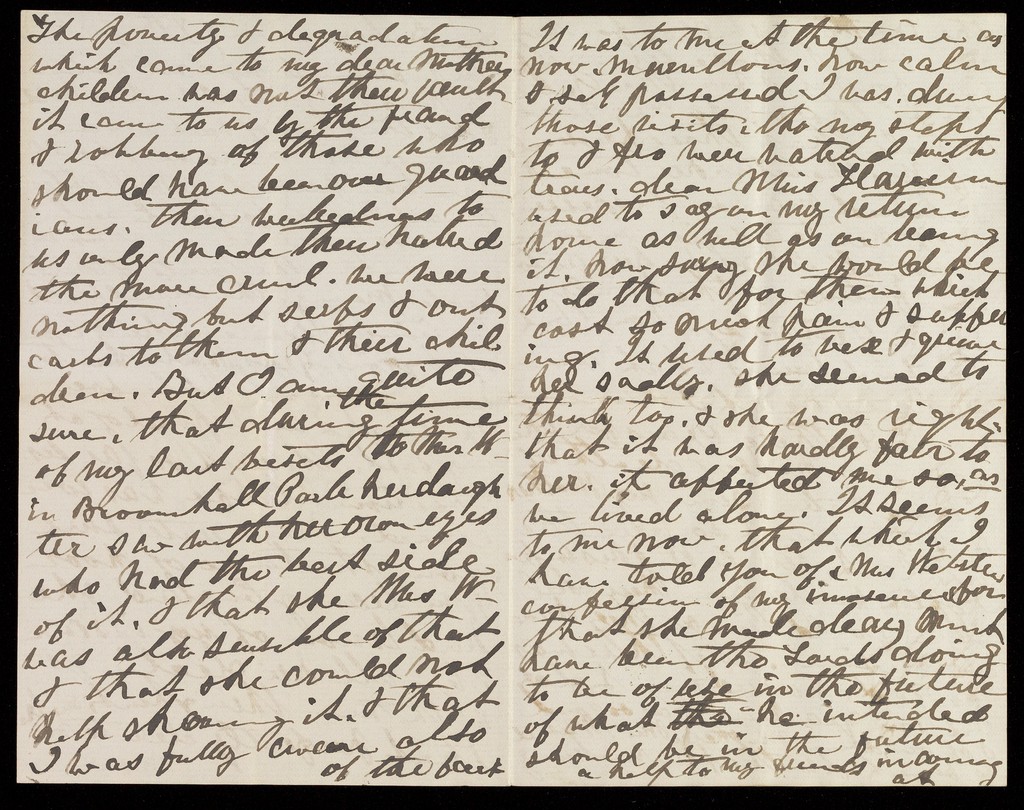 The poverty & degradation
which came to my dear Mothers
children was not their fault
it came to us by the fraud
& robbery of those who
should have been our guard
ians. their wickedness to
us only made their hatred
the more cruel. we were
nothing but serfs & out
casts to them & their chil
dren. But I am quite
sure, that during the time
of my last visits to Mrs W-
in Broomhall Park her daugh
ter saw with her own eyes
who had the best side
of it, & that she Mrs W-
was also sensible of that
& that she could not
help showing it. & that
I was fully aware also
of the fact
It was to me at the time as
now marvellous. how calm
& self possessed I was. during
those visits. tho my steps
to & fro were watered with
tears. dear Miss
used to say on my return
home as well as on leaving
it. how sorry she would be
to do that for them which
cost so much pain & suffer
ing. It used to vex & grieve
her sadly. she seemed to
think too, & she was right.
that it was hardly fair to
her. it affected me so, as
we lived alone. It seems
to me now. that which I
have told you of Mrs Webster
confession of my innocence for
that she made deny must
have been the Lords doing
to be of use in the future
of what the he intended
should be in the future
a help to my friends in coming
at